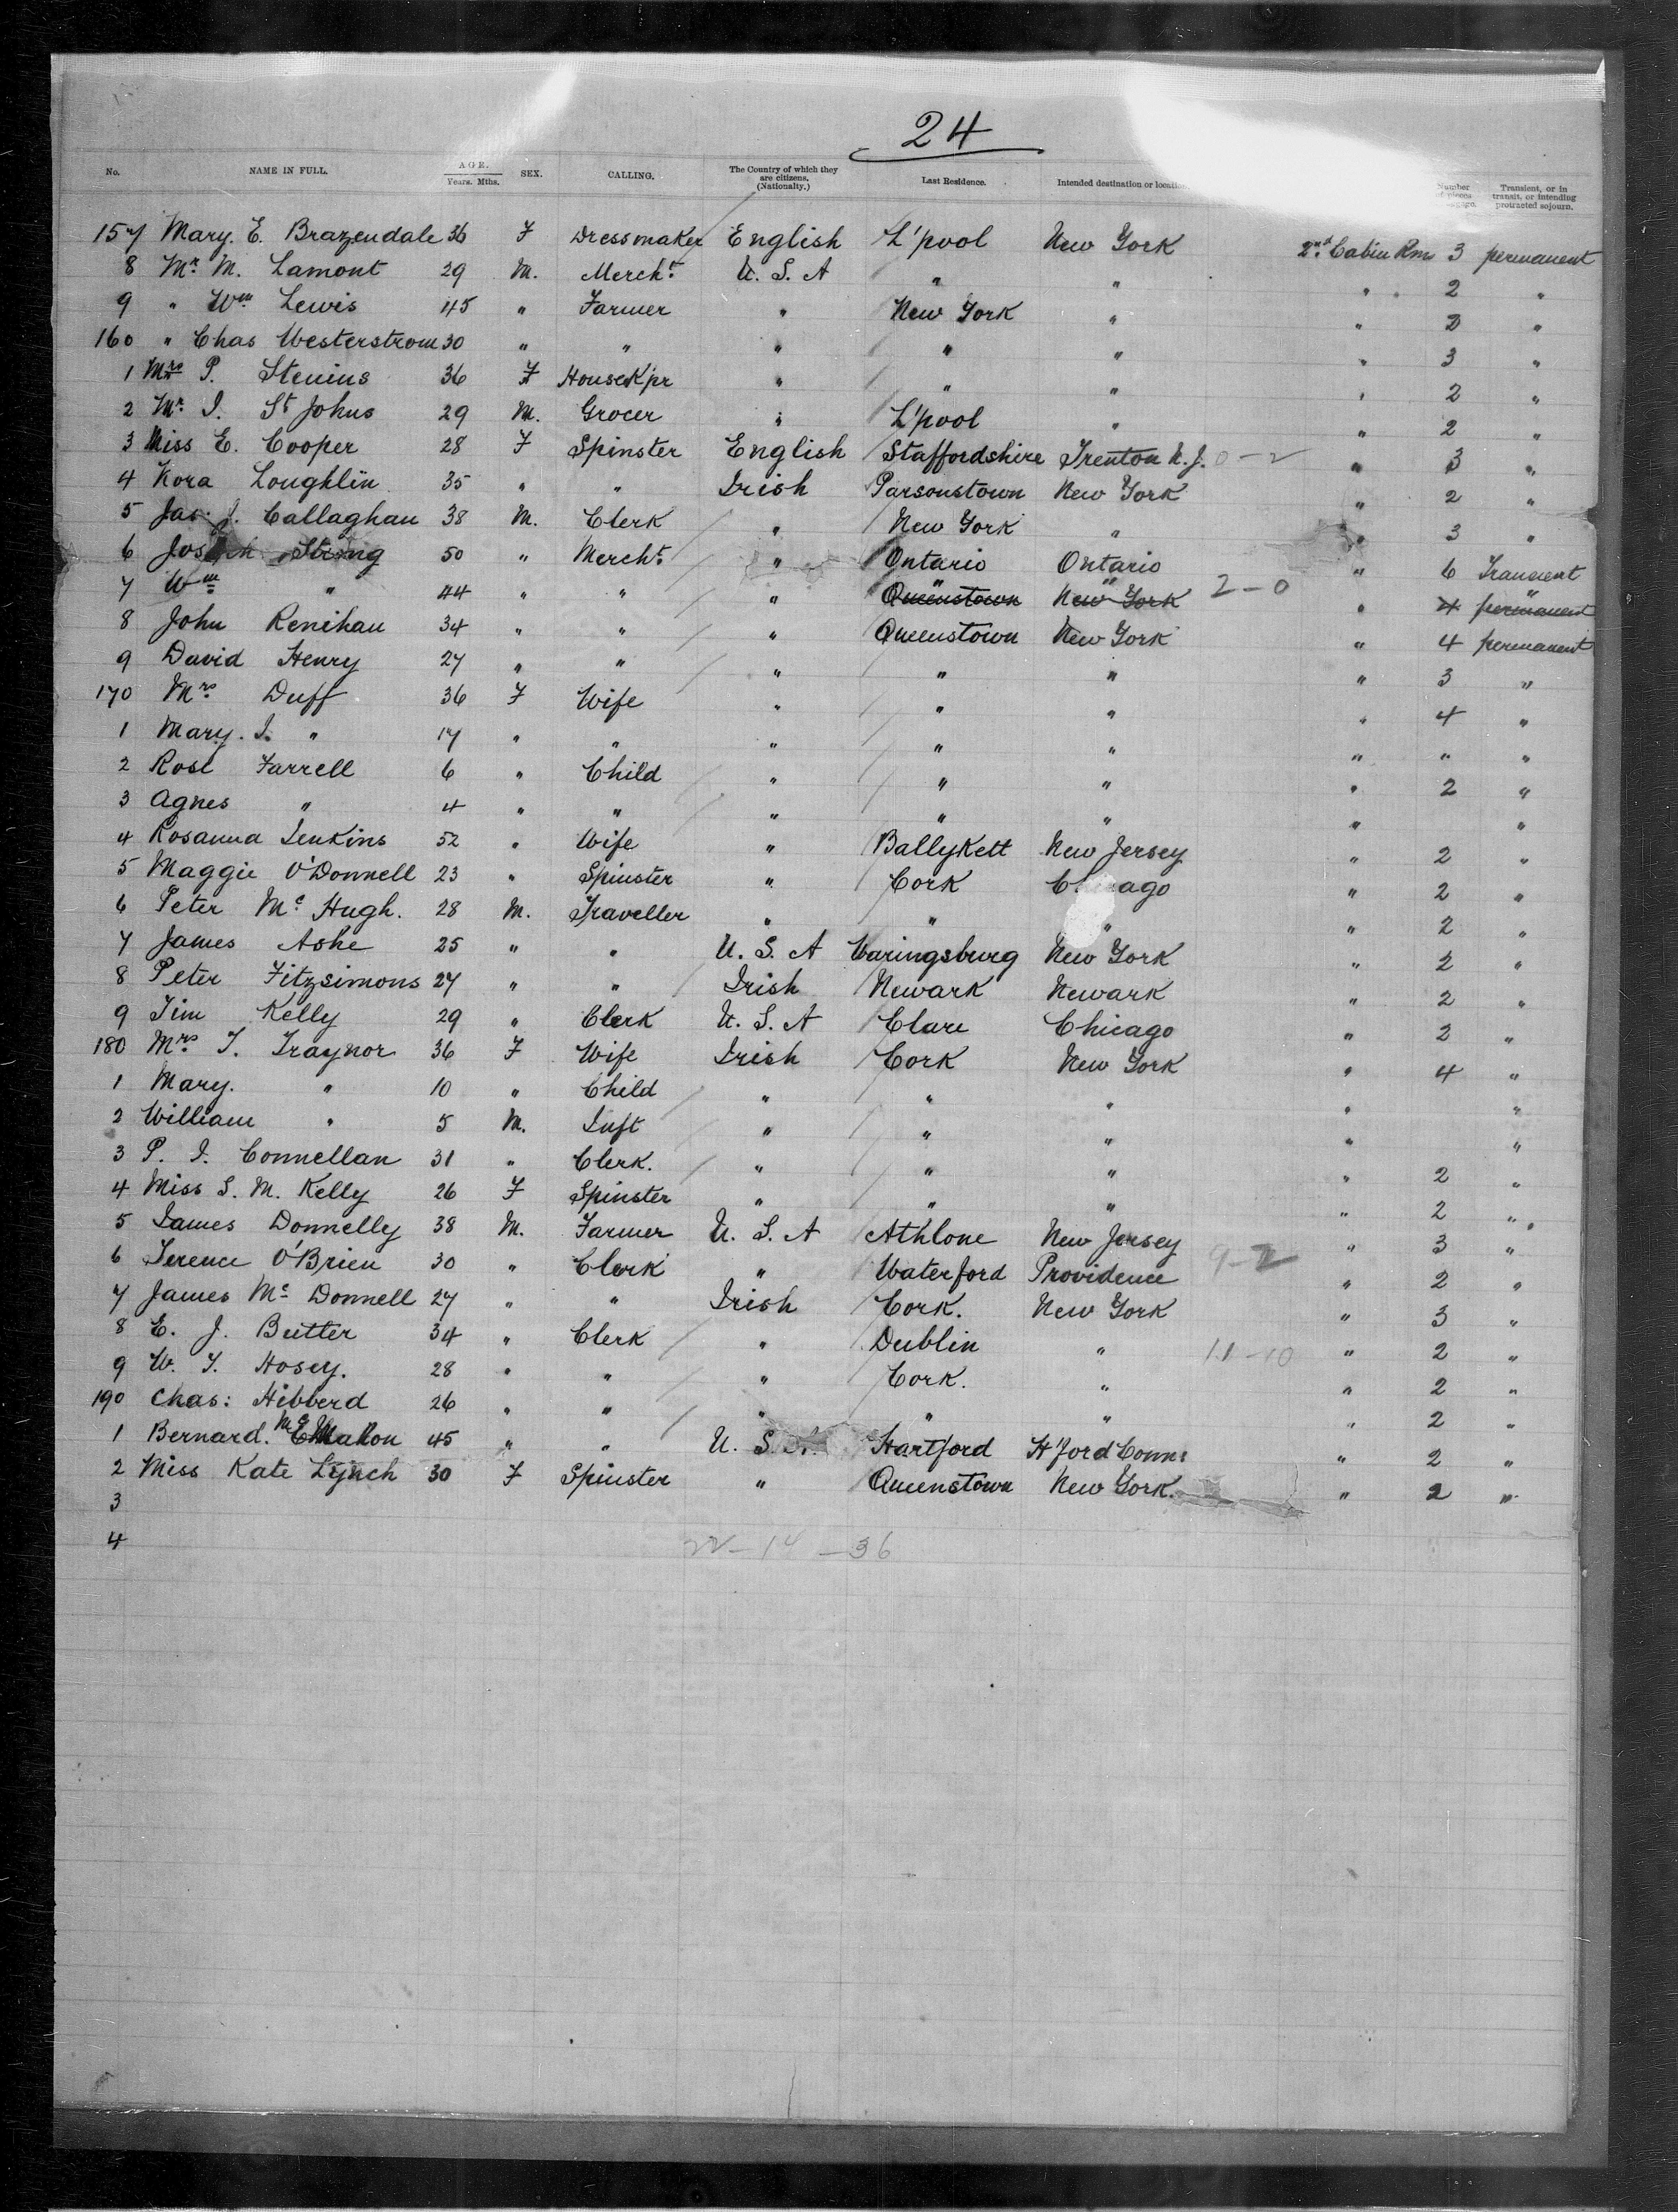 24
No. NAME IN FULL. AGE. Years. Mths. SEX. CALLING. The Country of which they are citizens. (Nationalty.) Last Residence. Intended destination or locatio Number of pieces Transient, or in transit, or intending protracted sojourn.
157 Mary. E. Brazendale 36 F Dressmaker English L'pool New York 2nd Cabin Rm 3 permanent
8 Mr. M. Lamont 29 M. Mercht. U. S. A " " " 2 "
9 " Wm Lewis 45 " Farmer " New York " " 2 "
160 " Chas Westerstrom 30 " " " " " " 3 "
1 Mrs P. Stenius 36 F HouseKpr " " " " 2 "
2 Mr. I. St Johns 29 M. Grocer " L'pool " " 2 "
3 Miss E. Cooper 28 F Spinster English Staffordshire Trenton N.J. 0-2 " 3 "
4 Nora Loughlin 35 " " Irish Parsonstown New York " 2 "
5 Jas. J. Callaghan 38 M. Clerk " New York " " 3 "
6 Joseph Strong 50 " Mercht. " Ontario Ontario " 6 Transient
7 Wm " 44 " " " " Queenstown " New York 2-0 " 4 " permanent
8 John Renihan 34 " " " Queenstown New York " 4 permanent
9 David Henry 27 " " " " " " 3 "
170 Mrs Duff 36 F Wife " " " " 4 "
1 Mary. J. " 17 " " " " " " " "
2 Rose Farrell 6 " Child " " " " 2 "
3 Agnes " 4 " " " " " " "
4 Rosanna Jenkins 52 " Wife " Ballykett New Jersey " 2 "
5 Maggie O'Donnell 23 " Spinster " Cork Chicago " 2 "
6 Peter Mc Hugh. 28 M. Traveller " " " " 2 "
7 James Ashe 25 " " U. S. A Waringsburg New York " 2 "
8 Peter Fitzsimons 27 " " Irish Newark Newark " 2 "
9 Tim Kelly 29 " Clerk U. S. A Clare Chicago " 2 "
180 Mrs T. Traynor 36 F Wife Irish Cork New York " 4 "
1 Mary. " 10 " Child " " " " "
2 William " 5 M. Inft " " " " "
3 P. J. Connellan 31 " Clerk. " " " " 2 "
4 Miss S. M. Kelly 26 F Spinster " " " " 2 "
5 James Donnelly 38 M. Farmer U. S. A Athlone New Jersey 9-2 " 3 "
6 Terence O'Brien 30 " Clerk " Waterford Providence " 2 "
7 James Mc Donnell 27 " " Irish Cork. New York " 3 "
8 E. J. Butler 34 " Clerk " Dublin " 11-10 " 2 "
9 W. T. Hosey. 28 " " " Cork. " " 2 "
190 Chas: Hibberd 26 " " " " " " 2 "
1 Bernard. McMahon 45 " " U. S. A. Hartford H'ford Conn: " 2 "
2 Miss Kate Lynch 30 F Spinster " Queenstown New York. " 2 "
3
4
22-14-36